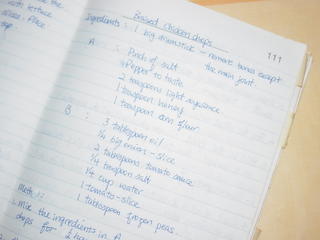 Braised chicken chops
111
Ingredients : 1 big drumstick - remove bones except
the main joint.
A : Pinch of salt
Pepper to taste
2 teaspoons light soyasauce
1 teaspoon honey
1 teaspoon corn flour
B : 3 tablespoon oil
big onion - slice
2 tablespoons tomato sauce
1/4 teaspoon salt
1/4 cup water
1 tomato - slice
1 tablespoon frozen peas.
Method :
Mix the ingredients in A
chops for 2
the
with lettuce